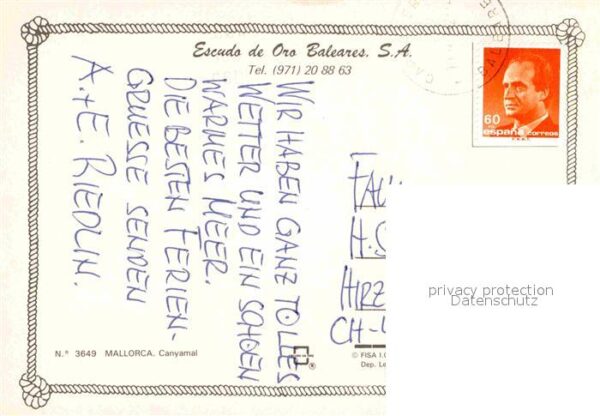 Escudo de Oro Baleares, S.A.
Tel. (971) 20 88 63
60
españa correos
WIR HABEN GANZ TOLLES
WETTER UND EIN SCHOEN
WARMES MEER.
DIE BESTEN FERIEN-
GRUESSE SENDEN
A. + E. RIEDLIN.
H.
HIRZ
CH-
privacy protection
Datenschutz
N.º 3649 MALLORCA. Canyamal
© FISA I.G.
Dep. Le